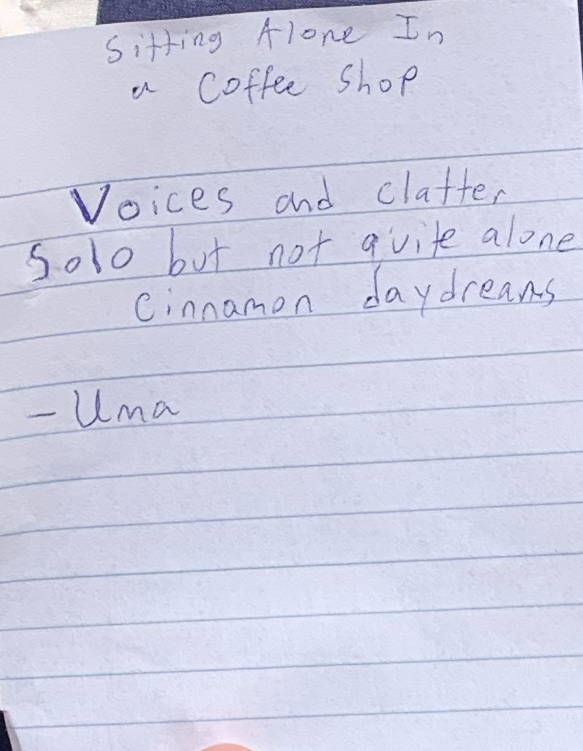 Sitting Alone In
a Coffee Shop
Voices and clatter
Solo but not quite alone
Cinnamon daydreams
- Uma